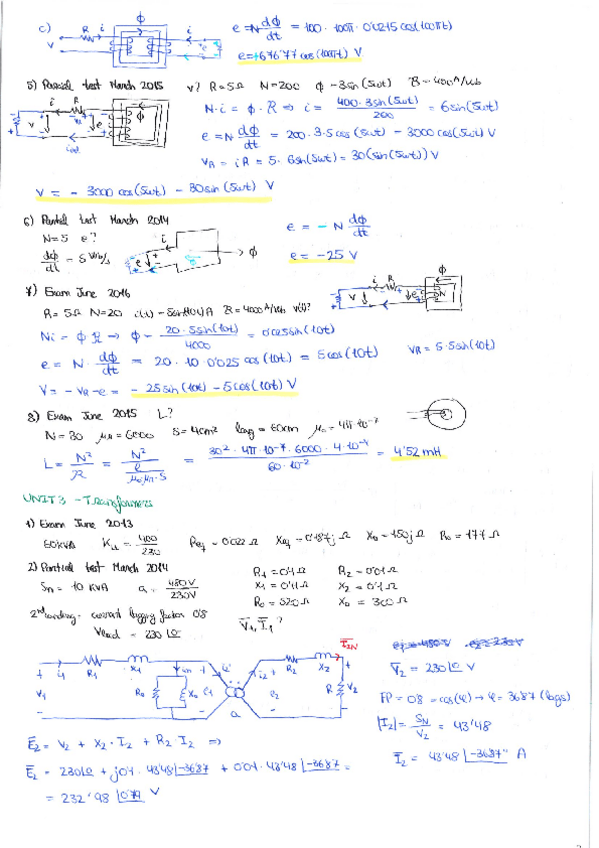 c)
R i φ i
v e
e = N dφ/dt = 100 · 100π · 0'0215 cos(100πt)
e = +676'77 cos(100πt) V
5) Partial test March 2015 v? R=5Ω N=200 φ=3sin(5wt) R=400 A/Wb
i R φ
v e
N·i = φ·R ⇒ i = 400·3sin(5wt)/200 = 6sin(5wt)
e = N dφ/dt = 200·3·5cos(5wt) = 3000cos(5wt) V
VR = iR = 5·6sin(5wt) = 30(sin(5wt)) V
V = -3000cos(5wt) - 30sin(5wt) V
6) Partial test March 2014
N=5 e?
dφ/dt = 5 Wb/s
i e φ
e = -N dφ/dt
e = -25 V
7) Exam June 2016
R=5Ω N=20 i(t)=5sin(10t)A R=4000 A/Wb v(t)?
i R φ
v e N
Ni = φR ⇒ φ = 20·5sin(10t)/4000 = 0'025sin(10t)
e = N·dφ/dt = 20·10·0'025cos(10t) = 5cos(10t)
VR = 5·5sin(10t)
V = -VR - e = -25sin(10t) - 5cos(10t) V
8) Exam June 2015 L?
N=30 μr=6000 S=4cm² long=60cm μ0=4π·10⁻⁷
L = N²/R = N²/(l/(μ0μr·S)) = 30²·4π·10⁻⁷·6000·4·10⁻⁴/60·10⁻² = 4'52 mH
UNIT 3 - Transformers
1) Exam June 2013
50KVA = 400/230 Req = 0'022Ω Xeq = 0'187j Ω X0 = 150j Ω R0 = 177 Ω
2) Partial test March 2014
Sn = 10 KVA a = 480V/230V
R1=0'4Ω R2=0'01Ω
X1=0'4Ω X2=0'1Ω
R0=520Ω X0=300Ω
2nd winding - current lagging factor 0'8
Vload = 230∠0
V1, I1?
i1 R1 X1 R0 X0 e1 a e2 i2 R2 X2 I2N R V2
V1
V2 = 230∠0 V
FP = 0'8 = cos(φ) → φ = 36'87 (lags)
|I2| = SN/V2 = 43'48
I2 = 43'48∠-36'87° A
E2 = V2 + X2·I2 + R2·I2 ⇒
E2 = 230∠0 + j0'1·43'48∠-36'87 + 0'01·43'48∠-36'87 =
= 232'98∠0'79 V